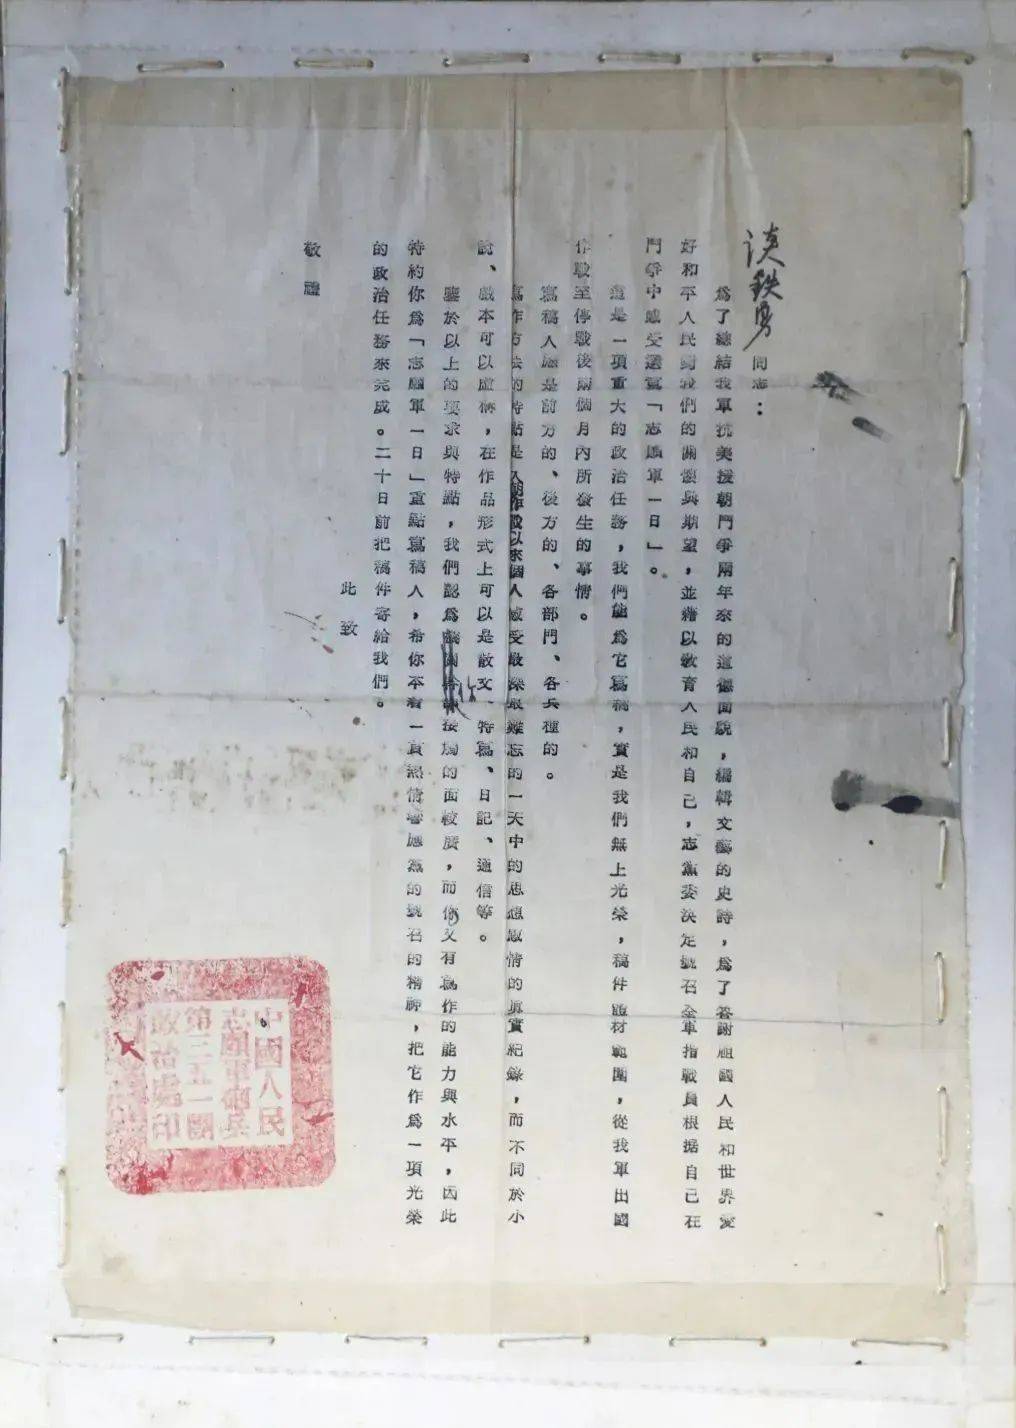 谈鉄勇同志：
為了總結我軍抗美援朝鬥爭兩年來的道德面貌，編輯文藝的史詩，為了答謝祖國人民和世界愛
好和平人民對我們的關懷與期望，並藉以教育人民和自己，志黨委決定號召全軍指戰員根据自己在
鬥爭中感受選寫「志願軍一日」。
這是一項重大的政治任務，我們能為它寫稿，實是我們無上光榮，稿件題材範圍，從我軍出國
作戰至停戰後兩個月內所發生的事情。
寫稿人應是前方的、後方的、各部門、各兵種的。
寫作方法的特點是入朝作戰以來個人感受最深最難忘的一天中的思想感情的真實紀錄，而不同於小
說、戲本可以虛構，在作品形式上可以是散文、特寫、日記、通信等。
鑒於以上的要求與特點，我們認為你接觸的面較廣，而你又有寫作的能力與水平，因此
特約你為「志願軍一日」重點寫稿人，希你本着一貫熱情響應黨的號召的精神，把它作為一項光榮
的政治任務來完成。二十日前把稿件寄給我們。
此致
敬禮
中國人民
志願軍砲兵
第三五一團
政治處印